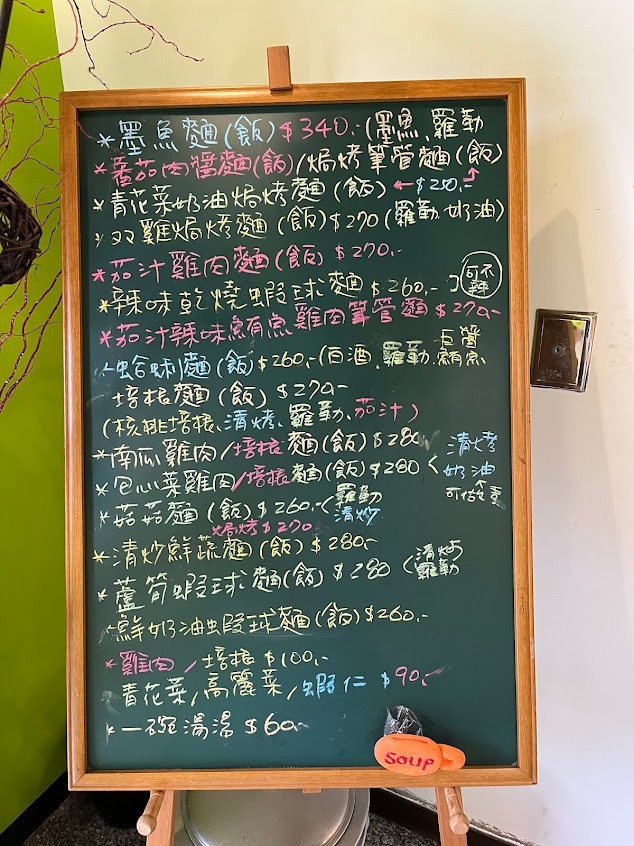 *墨魚麵(飯)$340.-(墨魚、羅勒
*蕃茄肉醬麵(飯)/焗烤筆管麵(飯)
*青花菜奶油焗烤麵(飯)←$250.-
*双雞焗烤麵(飯)$270(羅勒、奶油)
*茄汁雞肉麵(飯)$270.-
*辣味乾燒蝦球麵$260.-
可不辣
*茄汁辣味鮪魚雞肉筆管麵$270.-
蛤蜊麵(飯)$260.-(白酒、羅勒、巨醬鮪魚
培根麵(飯)$270.-
(核桃培根、清烤、羅勒、茄汁)
*南瓜雞肉/培根麵(飯)$280
*包心菜雞肉/培根麵(飯)$280<
清烤
奶油
可做素
*菇菇麵(飯)$260.-(羅勒
清炒
焗烤$270
*清炒鮮蔬麵(飯)$280.-
*蘆筍蝦球麵(飯)$280(清炒
羅勒
鮮奶油蝦球麵(飯)$260.-
*雞肉/培根$100.-
青花菜/高麗菜/蝦仁$90.-
*一碗湯湯$60.-
SOUP